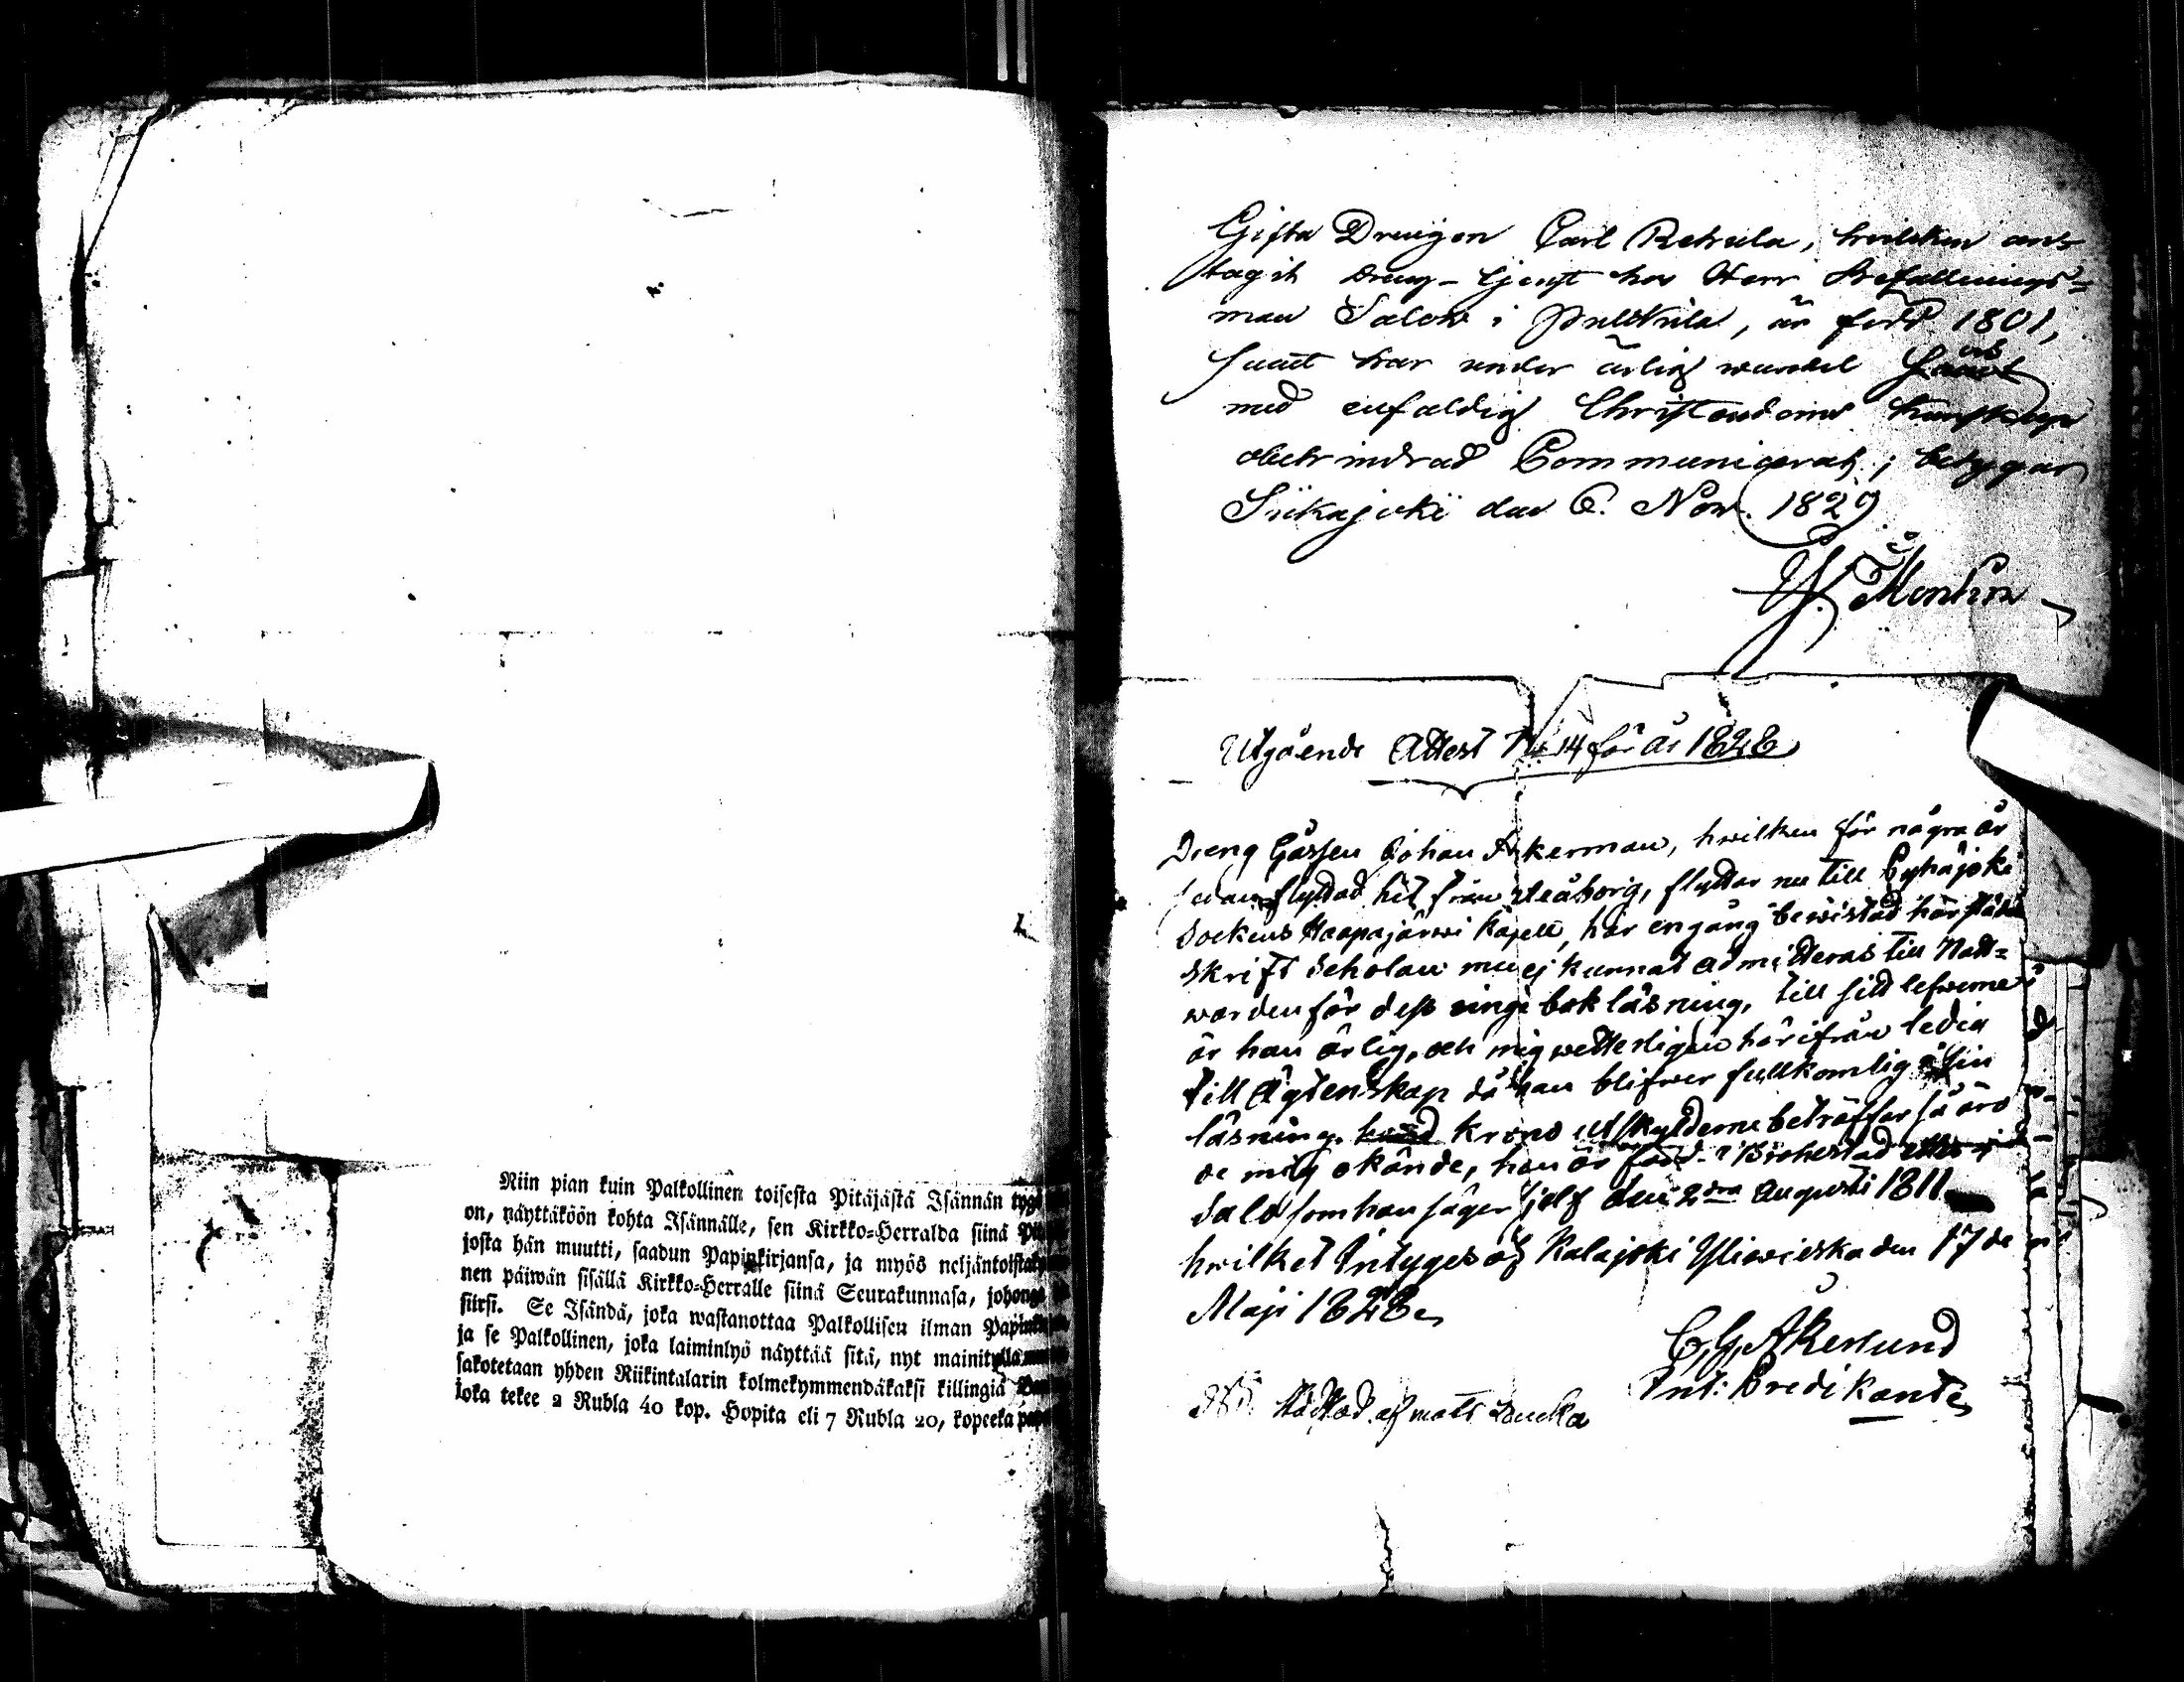 Niin pian kuin Palkollinen toisesta Pitäjästä Isännän tygö
on, näyttäköön kohta Isännälle, sen Kirkko-Herralda siinä
josta hän muutti, saadun Papinkirjansa, ja myös neljäntoista
nen päiwän sisällä Kirkko-Herralle siinä Seurakunnasa, johonga
siirsi. Se Isändä, joka wastanottaa Palkollisen ilman
ja se Palkollinen, joka laiminlyö näyttää sitä, nyt mainitulla
sakotetaan yhden Riikintalarin kolmekymmendäkaksi killingiä
joka tekee 2 Rubla 40 kop. Hopita eli 7 Rubla 20, kopeeka
Gifta Drengen Carl Retsula, hvilken an-
tagit Dreng-tjenst hos Herr Befallnings=
man Salow i Pulkkila, är född 1801,
samt har under ärlig wandel
med enfaldig Christendoms kunskap
obehindrad Communicerat; betygar
Siikajoki den 6. Nov. 1829.
W. Montin
Utgående Attest No 14 för år 1828
Dreng Gåssen Johan Åkerman, hwilken för några år
sedan flyttad hit från Uleåborg, flyttar nu till Pyhäjoki
Sockens Haapajärwi Kapell, har engång bewistad härstädes
skrift Scholan men ej kunnat admitteras till Natt=
warden för dess ringa bokläsning, till sitt lefwerne
är han ärlig, och mig wetterligen härifrån ledig
till Ägtenskap då han blifwer fullkomlig i sin
läsning. hwad krono utskylderne beträffar så äro
de mig okände, han är född i Brahestad
Salo som han säger sjelf den 2dra Augusti 1811
hwilket Intygas af Kalajoki Yliwieska den 17de
Maji 1828.
C. G. Åkerlund
Int: Predikante